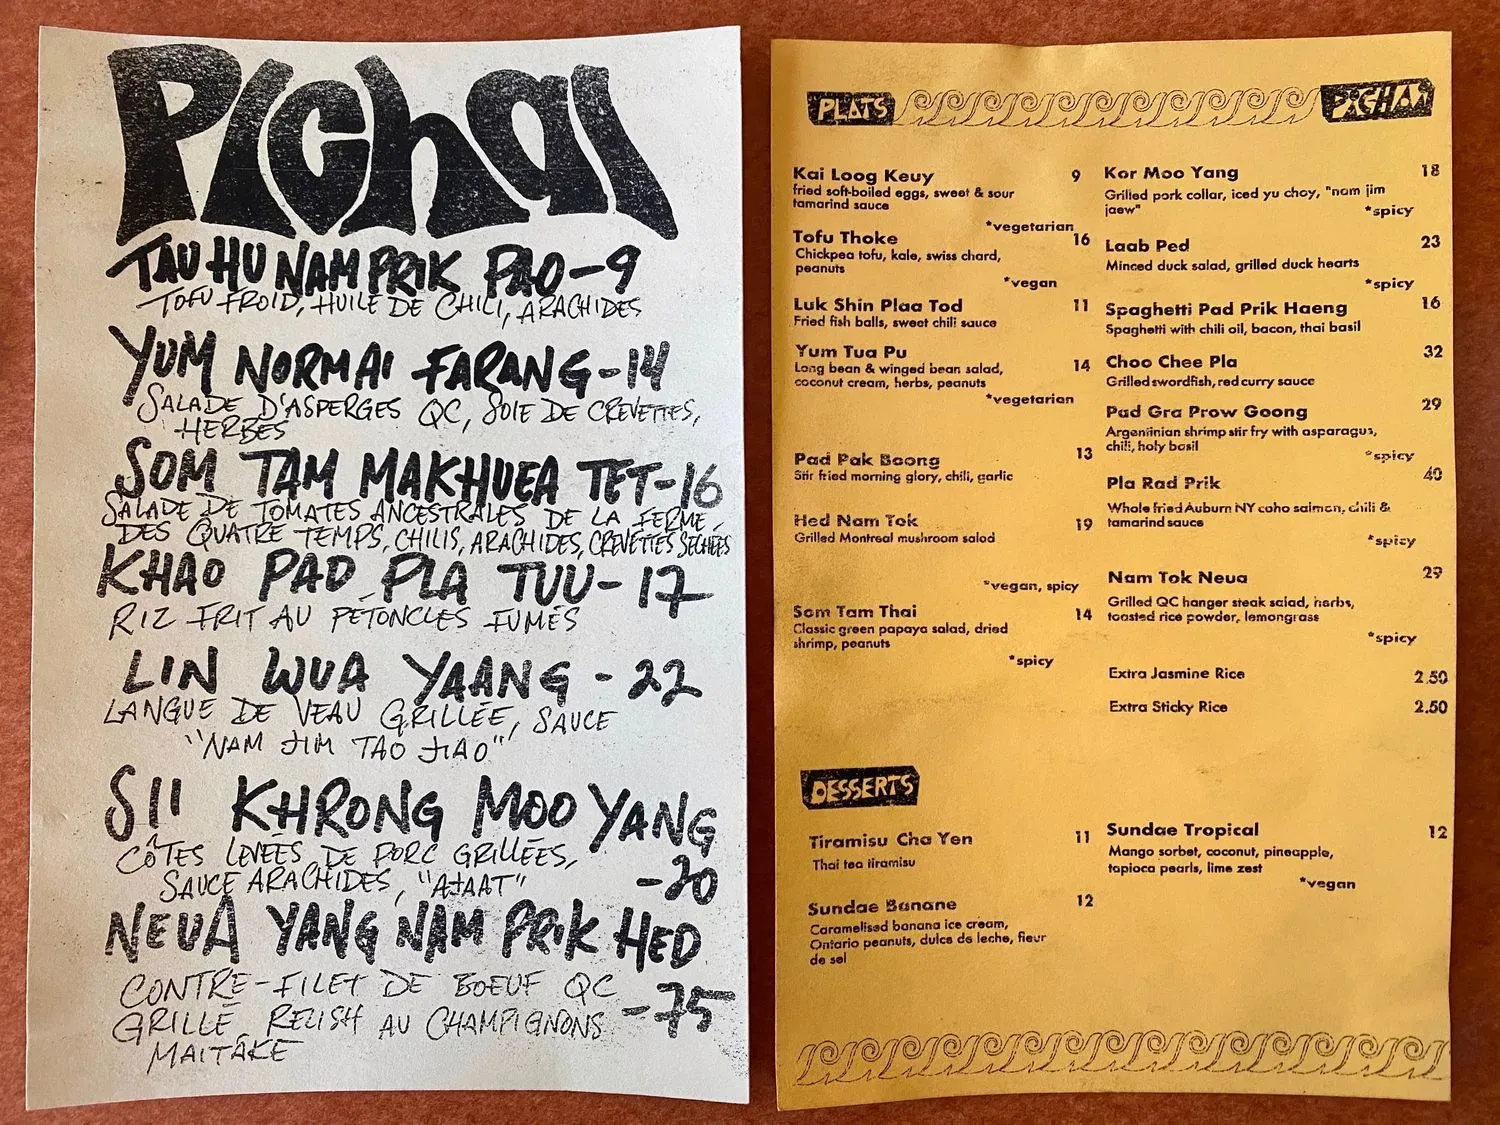 Pichai
TAU HU NAM PRIK PAO-9
TOFU FROID, HUILE DE CHILI, ARACHIDES
YUM NORMAI FARANG-14
SALADE D'ASPERGES QC, SOIE DE CREVETTES,
HERBES
SOM TAM MAKHUEA TET-16
SALADE DE TOMATES ANCESTRALES DE LA FERME
DES QUATRE TEMPS, CHILIS, ARACHIDES, CREVETTES SÉCHÉES
KHAO PAD PLA TUU-17
RIZ FRIT AU PÉTONCLES FUMÉS
LIN WUA YAANG-22
LANGUE DE VEAU GRILLÉE, SAUCE
"NAM JIM TAO JIAO"
SII KHRONG MOO YANG
CÔTES LEVÉES DE PORC GRILLÉES,
SAUCE ARACHIDES, "AJAAT"
-20
NEUA YANG NAM PRIK HED
CONTRE-FILET DE BOEUF QC
GRILLÉ, RELISH AU CHAMPIGNONS
-75
MAITAKE
PLATS
PICHAI
Kai Loog Keuy 9
fried soft-boiled eggs, sweet & sour
tamarind sauce
*vegetarian
Tofu Thoke 16
Chickpea tofu, kale, swiss chard,
peanuts
*vegan
Luk Shin Plaa Tod 11
Fried fish balls, sweet chili sauce
Yum Tua Pu 14
Long bean & winged bean salad,
coconut cream, herbs, peanuts
*vegetarian
Pad Pak Boong 13
Stir fried morning glory, chili, garlic
Hed Nam Tok 19
Grilled Montreal mushroom salad
*vegan, spicy
Som Tam Thai 14
Classic green papaya salad, dried
shrimp, peanuts
*spicy
Kor Moo Yang 18
Grilled pork collar, iced yu choy, "nam jim
jaew"
*spicy
Laab Ped 23
Minced duck salad, grilled duck hearts
*spicy
Spaghetti Pad Prik Haeng 16
Spaghetti with chili oil, bacon, thai basil
Choo Chee Pla 32
Grilled swordfish, red curry sauce
Pad Gra Prow Goong 29
Argentinian shrimp stir fry with asparagus,
chili, holy basil
*spicy
Pla Rad Prik 40
Whole fried Auburn NY coho salmon, chili &
tamarind sauce
*spicy
Nam Tok Neua 29
Grilled QC hanger steak salad, herbs,
toasted rice powder, lemongrass
*spicy
Extra Jasmine Rice 2.50
Extra Sticky Rice 2.50
DESSERTS
Tiramisu Cha Yen 11
Thai tea tiramisu
Sundae Banane 12
Caramelised banana ice cream,
Ontario peanuts, dulce de leche, fleur
de sel
Sundae Tropical 12
Mango sorbet, coconut, pineapple,
tapioca pearls, lime zest
*vegan